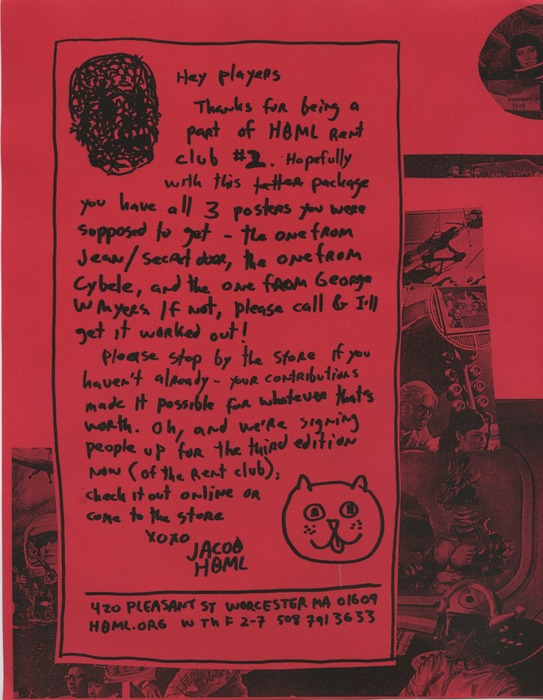 Hey players
Thanks for being a
part of HBML Rent
club #2. Hopefully
with this letter package
you have all 3 posters you were
supposed to get - the one from
Jean/Secret door, the one from
Cybele, and the one from George
W Myers. If not, please call & I'll
get it worked out!
Please stop by the store if you
haven't already - your contributions
made it possible for whatever that's
worth. Oh, and we're signing
people up for the third edition
now (of the Rent club),
check it out online or
come to the store
XOXO
JACOB
HBML
420 PLEASANT ST WORCESTER MA 01609
HBML.ORG W Th F 2-7 508 791 3633